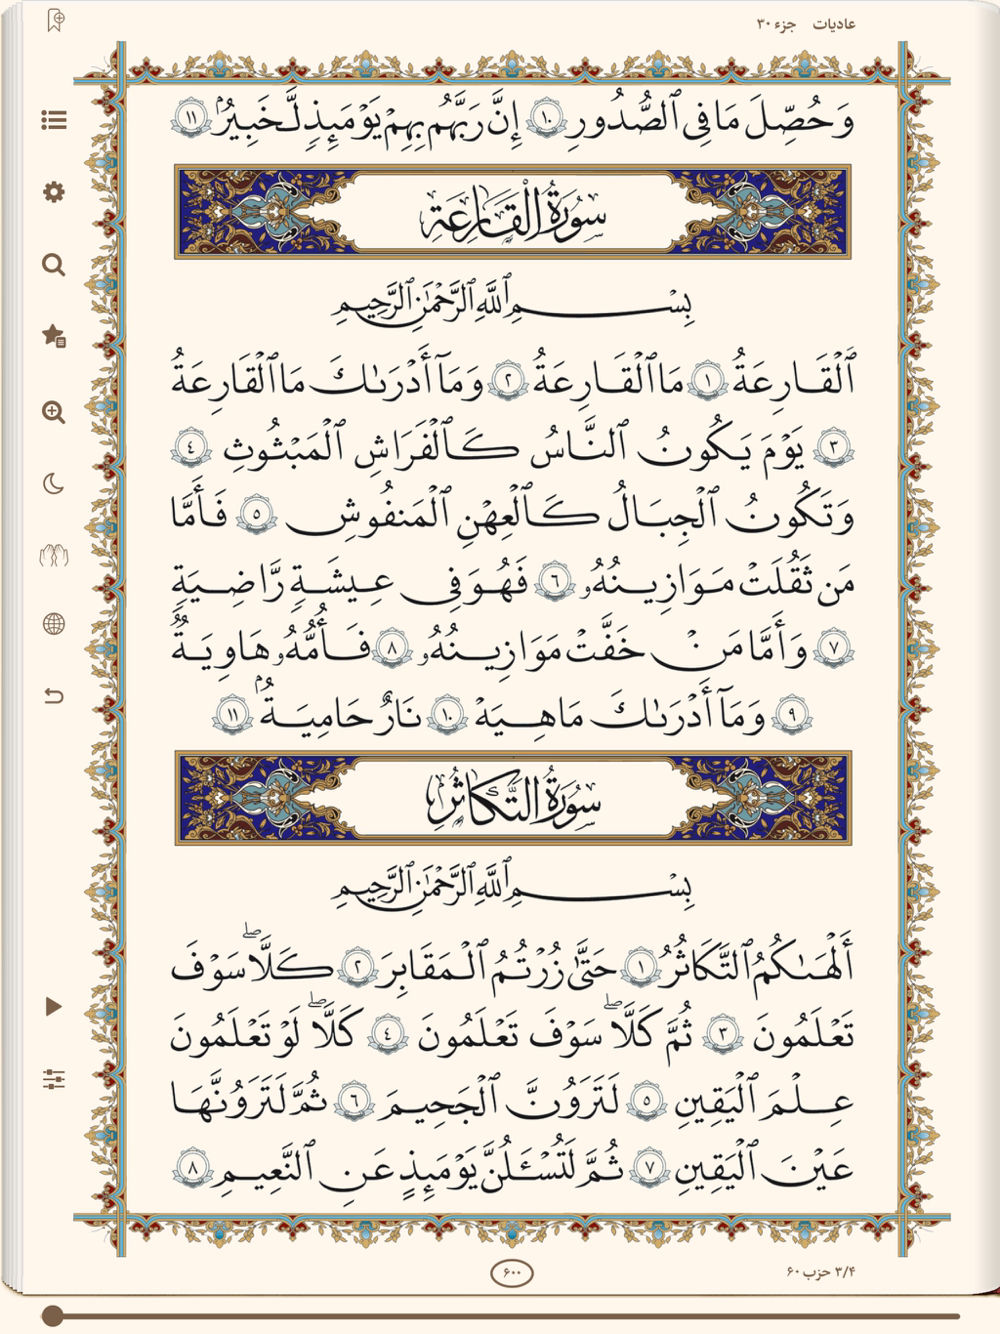 عادیات جزء ۳۰
وَحُصِّلَ مَا فِى ٱلصُّدُورِ ١٠ إِنَّ رَبَّهُم بِهِمْ يَوْمَئِذٍ لَّخَبِيرٌۢ ١١
سُورَةُ الْقَارِعَةِ
بِسْمِ ٱللَّهِ ٱلرَّحْمَـٰنِ ٱلرَّحِيمِ
ٱلْقَارِعَةُ ١ مَا ٱلْقَارِعَةُ ٢ وَمَآ أَدْرَىٰكَ مَا ٱلْقَارِعَةُ
٣ يَوْمَ يَكُونُ ٱلنَّاسُ كَٱلْفَرَاشِ ٱلْمَبْثُوثِ ٤
وَتَكُونُ ٱلْجِبَالُ كَٱلْعِهْنِ ٱلْمَنفُوشِ ٥ فَأَمَّا
مَن ثَقُلَتْ مَوَازِينُهُۥ ٦ فَهُوَ فِى عِيشَةٍ رَّاضِيَةٍ
٧ وَأَمَّا مَنْ خَفَّتْ مَوَازِينُهُۥ ٨ فَأُمُّهُۥ هَاوِيَةٌ
٩ وَمَآ أَدْرَىٰكَ مَا هِيَهْ ١٠ نَارٌ حَامِيَةٌۢ ١١
سُورَةُ التَّكَاثُرِ
بِسْمِ ٱللَّهِ ٱلرَّحْمَـٰنِ ٱلرَّحِيمِ
أَلْهَىٰكُمُ ٱلتَّكَاثُرُ ١ حَتَّىٰ زُرْتُمُ ٱلْمَقَابِرَ ٢ كَلَّا ۖ سَوْفَ
تَعْلَمُونَ ٣ ثُمَّ كَلَّا ۖ سَوْفَ تَعْلَمُونَ ٤ كَلَّا ۖ لَوْ تَعْلَمُونَ
عِلْمَ ٱلْيَقِينِ ٥ لَتَرَوُنَّ ٱلْجَحِيمَ ٦ ثُمَّ لَتَرَوُنَّهَا
عَيْنَ ٱلْيَقِينِ ٧ ثُمَّ لَتُسْـَٔلُنَّ يَوْمَئِذٍ عَنِ ٱلنَّعِيمِ ٨
۳/۴ حزب ۶۰
۶۰۰